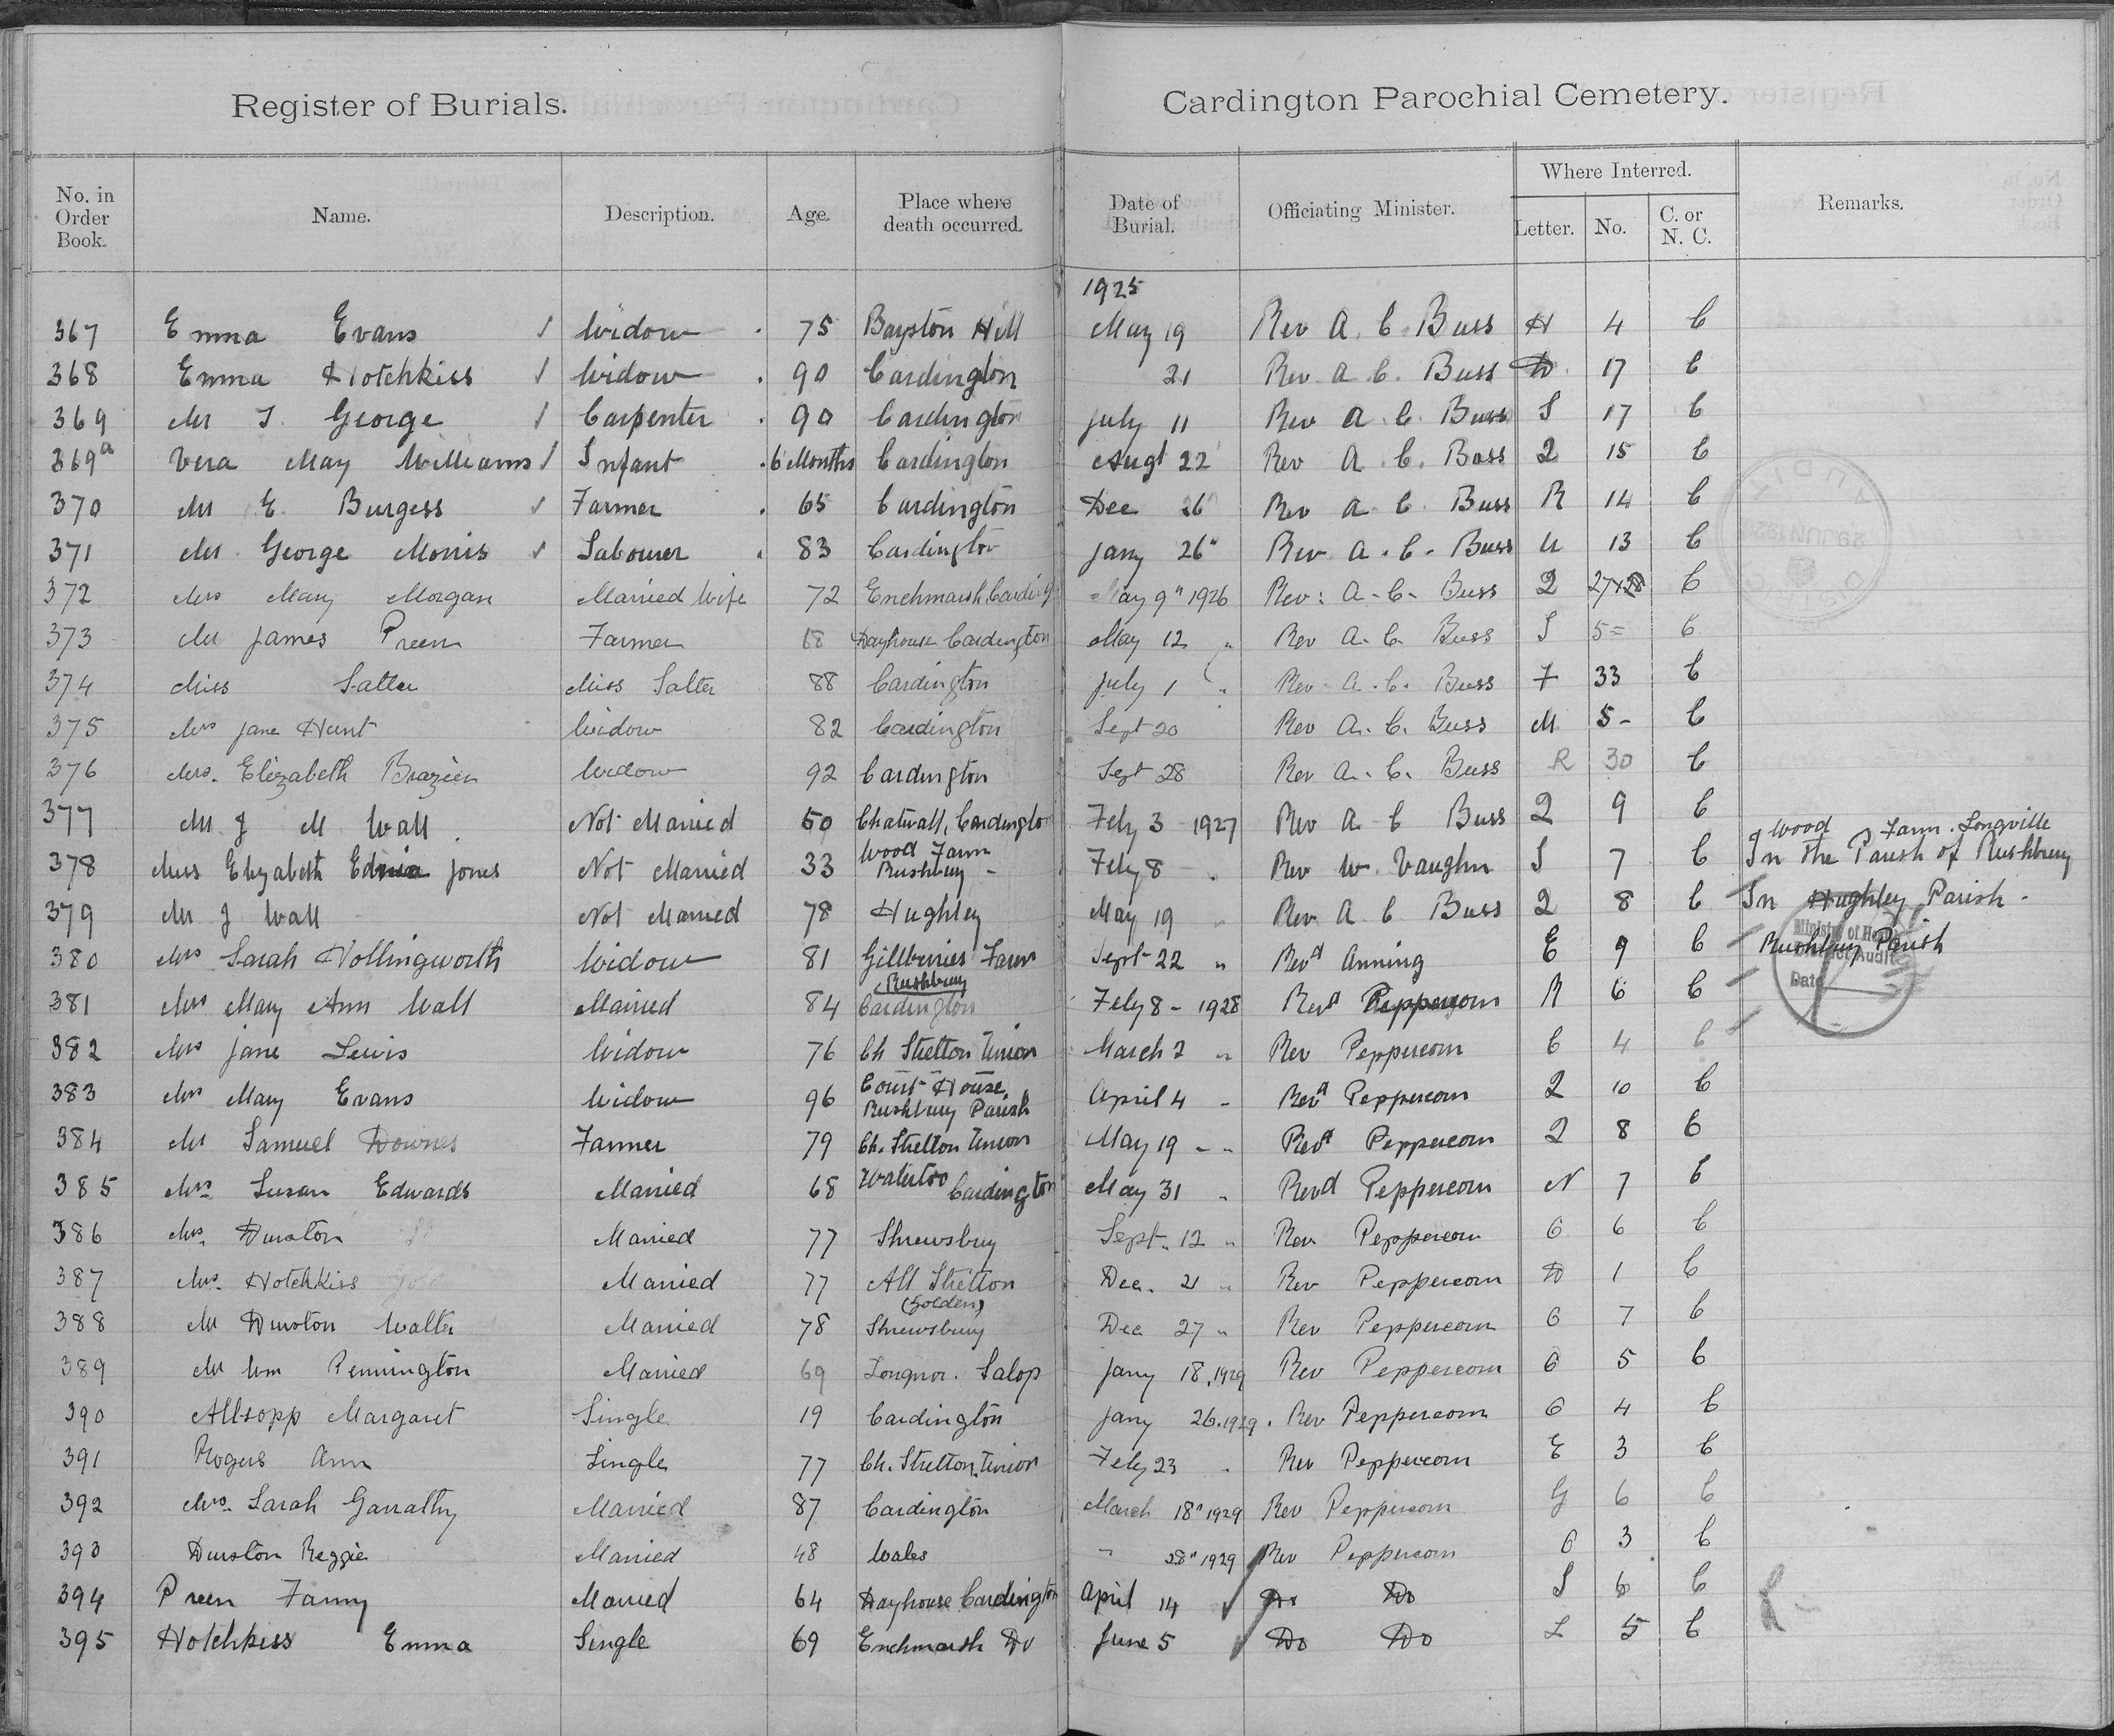 Register of Burials.
Cardington Parochial Cemetery.
No. in Order Book. Name. Description. Age. Place where death occurred. Date of Burial. Officiating Minister. Where Interred. Letter. No. C. or N. C. Remarks.
1925
367 Emma Evans Widow 75 Bayston Hill May 19 Rev A. C. Buss H 4 C
368 Emma Hotchkiss Widow 90 Cardington 21 Rev A. C. Buss D 17 C
369 Mr T. George Carpenter 90 Cardington July 11 Rev A. C. Buss S 17 C
369a Vera May Williams Infant 6 Months Cardington Augt 22 Rev A. C. Buss Q 15 C
370 Mr E. Burgess Farmer 65 Cardington Dec 26 Rev A. C. Buss R 14 C
371 Mr George Morris Labourer 83 Cardington Jany 26" Rev A. C. Buss U 13 C
372 Mrs Mary Morgan Married Wife 72 Enchmarsh, Carding May 9" 1926 Rev: A. C. Buss Q 27+28 C
373 Mr James Preen Farmer 68 Dayhouse Cardington May 12 " Rev A. C. Buss S 5 = C
374 Miss Salter Miss Salter 88 Cardington July 1 " Rev A. C. Buss F 33 C
375 Mrs Jane Hunt Widow 82 Cardington Sept 20 Rev A. C. Buss M 5 - C
376 Mrs. Elizabeth Brazier Widow 92 Cardington Sept 28 Rev A. C. Buss R 30 C
377 Mr J M Wall Not Married 50 Chatwall, Cardington Feby 3 1927 Rev A C Buss Q 9 C
Wood Farm Wood Farm. Longville
378 Miss Elizabeth Edna Jones Not Married 33 Rushbury - Feby 8 " Rev W. Vaughn S 7 C In the Parish of Rushbury
379 Mr J Wall Not Married 78 Hughley May 19 " Rev A C Buss Q 8 C In Hughley Parish -
380 Mrs Sarah Hollingworth Widow 81 Gilberries Farm Sept 22 " Revd Anning E 9 C Rushbury Parish
Rushbury
Ministry of Health
District Audit
Date
381 Mrs Mary Ann Wall Married 84 Cardington Feby 8 - 1928 Revd Peppercorn R 6 C
382 Mrs Jane Lewis Widow 76 Ch Stretton Union March 2 " Rev Peppercorn C 4 C
Court House,
383 Mrs Mary Evans Widow 96 Rushbury Parish April 4 - Revd Peppercorn Q 10 C
384 Mr Samuel Downes Farmer 79 Ch. Stretton Union May 19 - " Revd Peppercorn Q 8 C
385 Mrs. Susan Edwards Married 68 Waterloo Cardington May 31 " Revd Peppercorn N 7 C
386 Mrs. Durston Married 77 Shrewsbury Sept. 12 " Rev Peppercorn O 6 C
387 Mrs. Hotchkiss Married 77 All Stretton Dec. 21 " Rev Peppercorn D 1 C
388 Mr Durston Walter Married 78 Shrewsbury Dec 27 " Rev Peppercorn O 7 C
389 Mr Wm Pennington Married 69 Longnor. Salop Jany 18, 1929 Rev Peppercorn O 5 C
390 Allsopp Margaret Single 19 Cardington Jany 26. 1929. Rev Peppercorn O 4 C
391 Rogers Ann Single 77 Ch. Stretton. Union Feby 23 " Rev Peppercorn E 3 C
392 Mrs. Sarah Garratty Married 87 Cardington March 18" 1929 Rev Peppercorn G 6 C
393 Durston Reggie Married 48 Wales " 28" 1929 Rev Peppercorn O 3 C
394 Preen Fanny Married 64 Dayhouse Cardington April 14 Do Do S 6 C
395 Hotchkiss Emma Single 69 Enchmarsh Do June 5 Do Do L 5 C